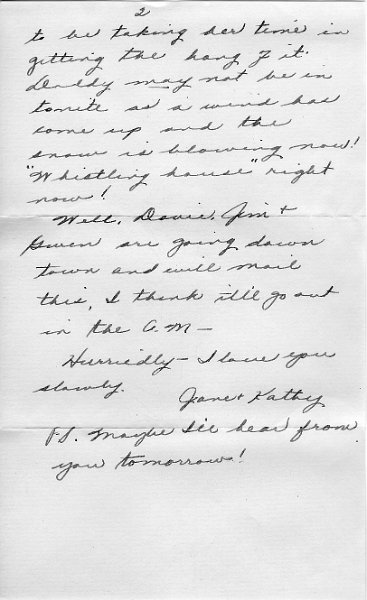 2
to be taking her time in
gitting the hang of it.
Daddy may not be in
tonite as a wind has
come up and the
snow is blowing now!
"Whistling house" right
now!
Well, Davie, Jim +
Gwen are going down
town and will mail
this, I think it'll go out
in the A.M —
Hurriedly — I love you
slowly.
Jane + Kathy
P.S. Maybe I'll hear from
you tomorrow!